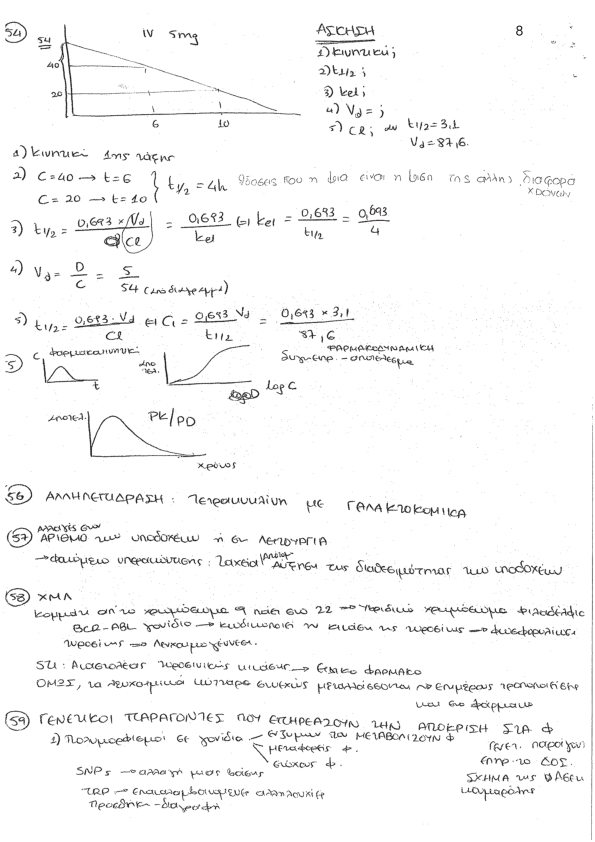 54
IV 5mg
ΑΣΚΗΣΗ
8
54
40
20
6
10
1) Κινητική ;
2) t1/2 ;
3) kel ;
4) Vd = ;
5) Cl ; αν t1/2 = 3,1
Vd = 87,6.
1) Κινητική 1ης τάξης
2) C = 40 → t = 6
C = 20 → t = 10 } t1/2 = 4h θδόσεις που η μια είναι η μιση της άλλης, διαφορά χρόνων
3) t1/2 = 0,693 × Vd / Cl = 0,693 / kel (=) kel = 0,693 / t1/2 = 0,693 / 4
4) Vd = D / C = 5 / 54 (από διάγραμμα)
5) t1/2 = 0,693 · Vd / Cl (=) Cl = 0,693 Vd / t1/2 = 0,693 × 3,1 / 87,6
5
C φαρμακοκινητική
t
αποτελ.
log C
ΦΑΡΜΑΚΟΔΥΝΑΜΙΚΗ
συγκεντρ. - αποτέλεσμα
αποτελ.
PK/PD
χρόνος
56 ΑΛΛΗΛΕΠΙΔΡΑΣΗ : Τετρακυκλίνη με ΓΑΛΑΚΤΟΚΟΜΙΚΑ
57 Αλλαγές στον
ΑΡΙΘΜΟ των υποδοχέων ή στη ΛΕΙΤΟΥΡΓΙΑ
→ φαινόμενο υπεραπόκρισης : Ταχεία αύξηση της διαθεσιμότητας των υποδοχέων
58 ΧΜΛ
Κομμάτι απ' το χρωμόσωμα 9 πάει στο 22 → υβριδικό χρωμόσωμα φιλαδέλφεια
BCR-ABL γονίδιο → κωδικοποιεί την κινάση της τυροσίνης → φωσφορυλίωση
τυροσίνης → λευχαιμογέννεση.
STI : Αναστολέας τυροσινικής κινάσης → Ειδικό ΦΑΡΜΑΚΟ
ΟΜΩΣ, τα λευχαιμικά κύτταρα συνεχώς μεταλλάσσονται → επιμέρους τροποποιήσεις
και στο φάρμακο
59 ΓΕΝΕΤΙΚΟΙ ΠΑΡΑΓΟΝΤΕΣ ΠΟΥ ΕΠΗΡΕΑΖΟΥΝ ΤΗΝ ΑΠΟΚΡΙΣΗ ΣΤΑ Φ
1) Πολυμορφισμοί σε γονίδια
ενζύμων που ΜΕΤΑΒΟΛΙΖΟΥΝ Φ
μεταφορείς φ.
στόχους φ.
SNPs → αλλαγή μιας βάσης
TRP → επαναλαμβανόμενες αλληλουχίες
προσθήκη - διαγραφή
Γενετ. παράγοντ
επηρ. το ΔΟΣ.
ΣΧΗΜΑ της
καμαρότης